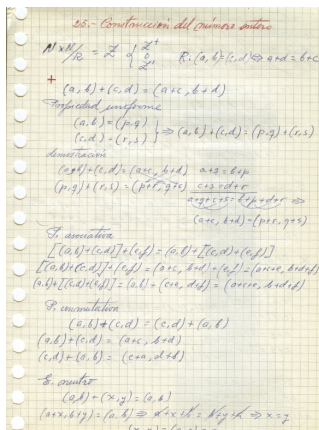 25.- Construcción del número entero
N×N/R = Z { Z⁺ 0 Z⁻ R: (a,b)=(c,d) ⇔ a+d=b+c
+
(a,b)+(c,d) = (a+c, b+d)
Propiedad uniforme
(a,b) = (p,q)
(c,d) = (r,s) } ⇒ (a,b)+(c,d) = (p,q)+(r,s)
demostración
(a,b)+(c,d) = (a+c, b+d) a+q = b+p
(p,q)+(r,s) = (p+r, q+s) c+s = d+r
a+q+c+s = b+p+d+r ⇒
(a+c, b+d) = (p+r, q+s)
P. asociativa
[(a,b)+(c,d)]+(e,f) = (a,b)+[(c,d)+(e,f)]
[(a,b)+(c,d)]+(e,f) = (a+c, b+d)+(e,f) = (a+c+e, b+d+f)
(a,b)+[(c,d)+(e,f)] = (a,b)+(c+e, d+f) = (a+c+e, b+d+f)
P. conmutativa
(a,b)+(c,d) = (c,d)+(a,b)
(a,b)+(c,d) = (a+c, b+d)
(c,d)+(a,b) = (c+a, d+b)
E. neutro
(a,b)+(x,y) = (a,b)
(a+x, b+y) = (a,b) ⇒ a+x+b = b+y+a ⇒ x=y